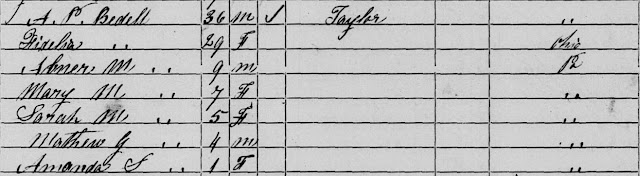 A. P. Bedell 36 m / Taylor "
Fidelia " 29 F Ohio
Abner M " 9 m Pa
Mary M " 7 F "
Sarah M " 5 F "
Mathew G " 4 m "
Amanda S " 1 F "